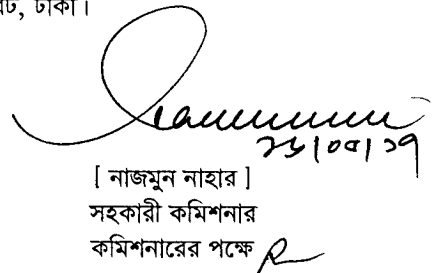 ঢাকা।
[ নাজমুন নাহার ]
সহকারী কমিশনার
কমিশনারের পক্ষে